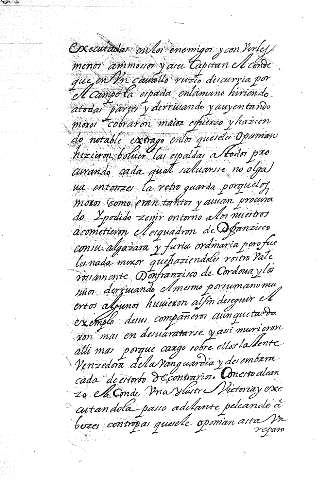 executadas en los enemigos y con verles
menos animosos y a su Capitan el Conde
que en Un cauallo ruçio discurria por
el Campo la espada en la mano hiriendo
a todas partes y derriuando y auyentando
moros cobraron maior esfuerzo y hazien
do notable estrago en los que se les oponian
hizieron boluer las espaldas a todos pro
curando cada qual saluarse no olga
ua entonzes la retroguarda porque los
moros como eran tantos y auian procura
do y podido zenir en torno a los nuestros
acometieron el esquadron de D. franzisco
con su algazara y furia ordinaria pero fue
los nada mexor que haziendoles rostro Vale
rosamente Don franzisco de Cordoua y los
suios derriuando el mesmo por su mano mu
ertos algunos huuieron al fin de seguir el
exemplo de sus compañeros aunque tarda
ron mas en desuaratarse y asi murieron
alli mas porque cargo sobre ellos la Jente
Venzedora de la Vanguardia y desembara
cada de estoruo de contrarios. Con esto alcan
zo el Conde Una ylustre Victoria y exe
cutandola paso adelante peleando a
bezes contra los que se le oponian asta Un
reparo